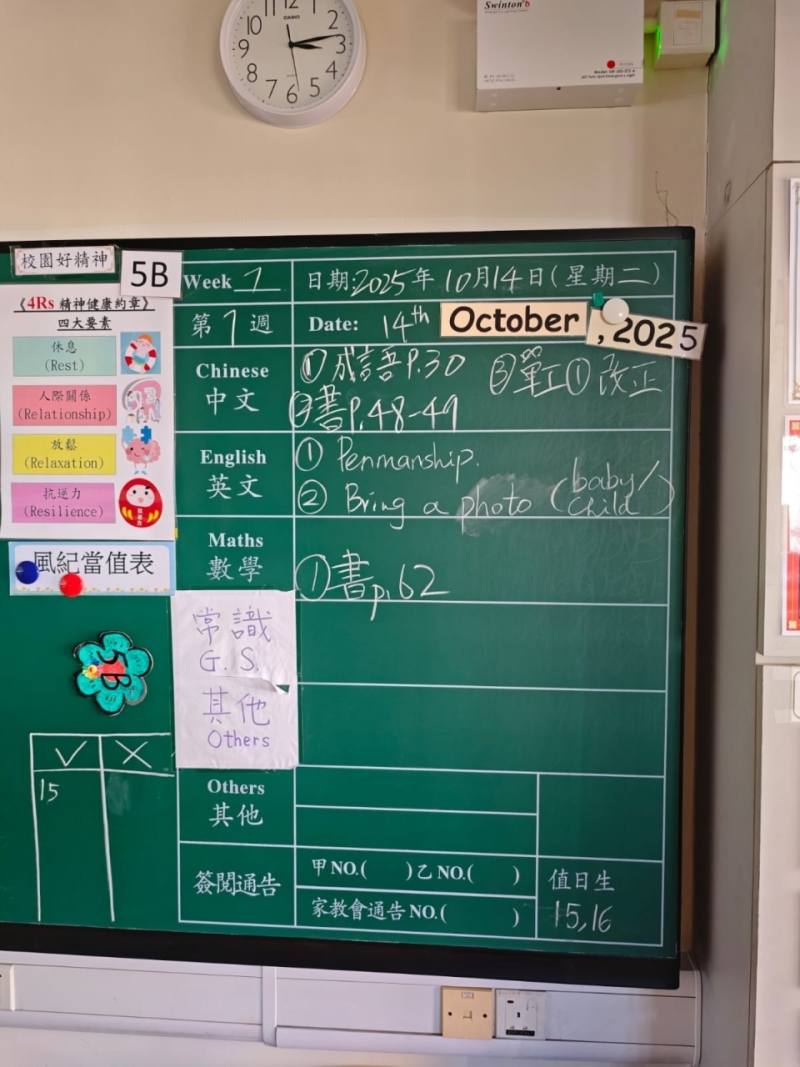 12
1
2
3
4
5
6
7
8
9
10
11
CASIO
Swinton's
校園好精神
5B
《4Rs 精神健康約章》
四大要素
休息
(Rest)
人際關係
(Relationship)
放鬆
(Relaxation)
抗逆力
(Resilience)
風紀當值表
5B
✓ ✕
15
Week 7 日期:2025年10月14日(星期二)
第7週 Date: 14th October, 2025
Chinese
中文
①成語P.30 ③單工①改正
②書P.48-49
English
英文
① Penmanship.
② Bring a photo (baby/child)
Maths
數學
①書p.62
常識
G.S.
其他
Others
Others
其他
簽閱通告
甲NO.( )乙NO.( )
家教會通告NO.( )
值日生
15,16